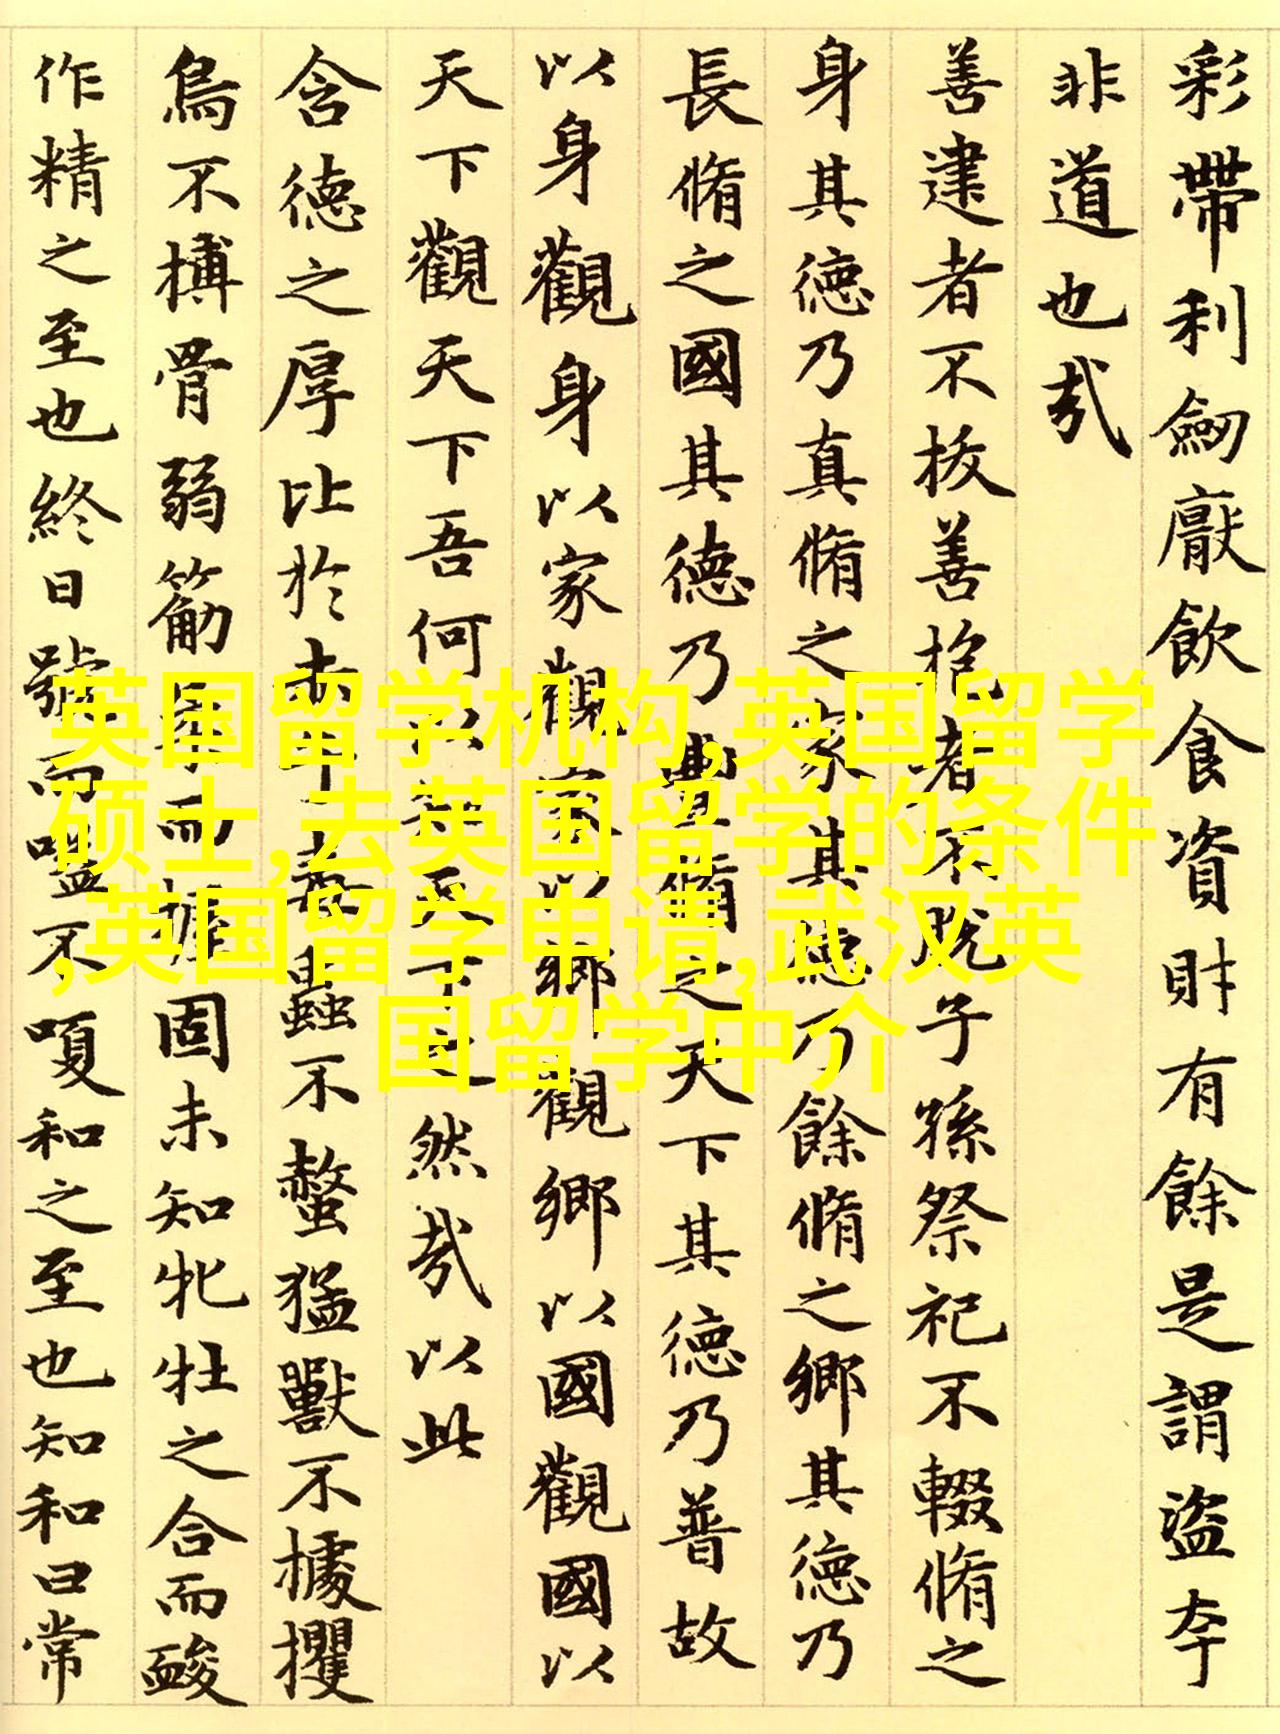 彩帶利劒厭飲食資財有餘是謂盜夸
非道也㢤
善建者不拔善抱者不脫子孫祭祀不輟脩之
身其德乃真脩之家其德乃餘脩之鄉其德乃
長脩之國其德乃豐脩之天下其德乃普故
以身觀身以家觀家以鄉觀鄉以國觀國以
天下觀天下吾何以知天下之然㢤以此
含德之厚比於赤子毒蟲不螫猛獸不據攫
鳥不搏骨弱筋柔而握固未知牝牡之合而酸
作精之至也終日號而嗌不嗄和之至也知和曰常
英国留学机构,英国留学
硕士,去英国留学的条件
,英国留学申请,武汉英
国留学中介